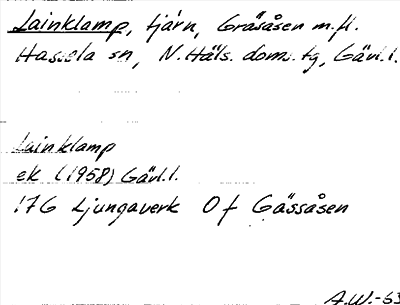 Lainklamp, tjärn, Gräsåsen m.fl.
Hassela sn, N.Häls. doms.tg, Gävl.l.
Lainklamp
ek (1958) Gävl.l.
17G Ljungaverk Of Gässåsen
A.W.-63